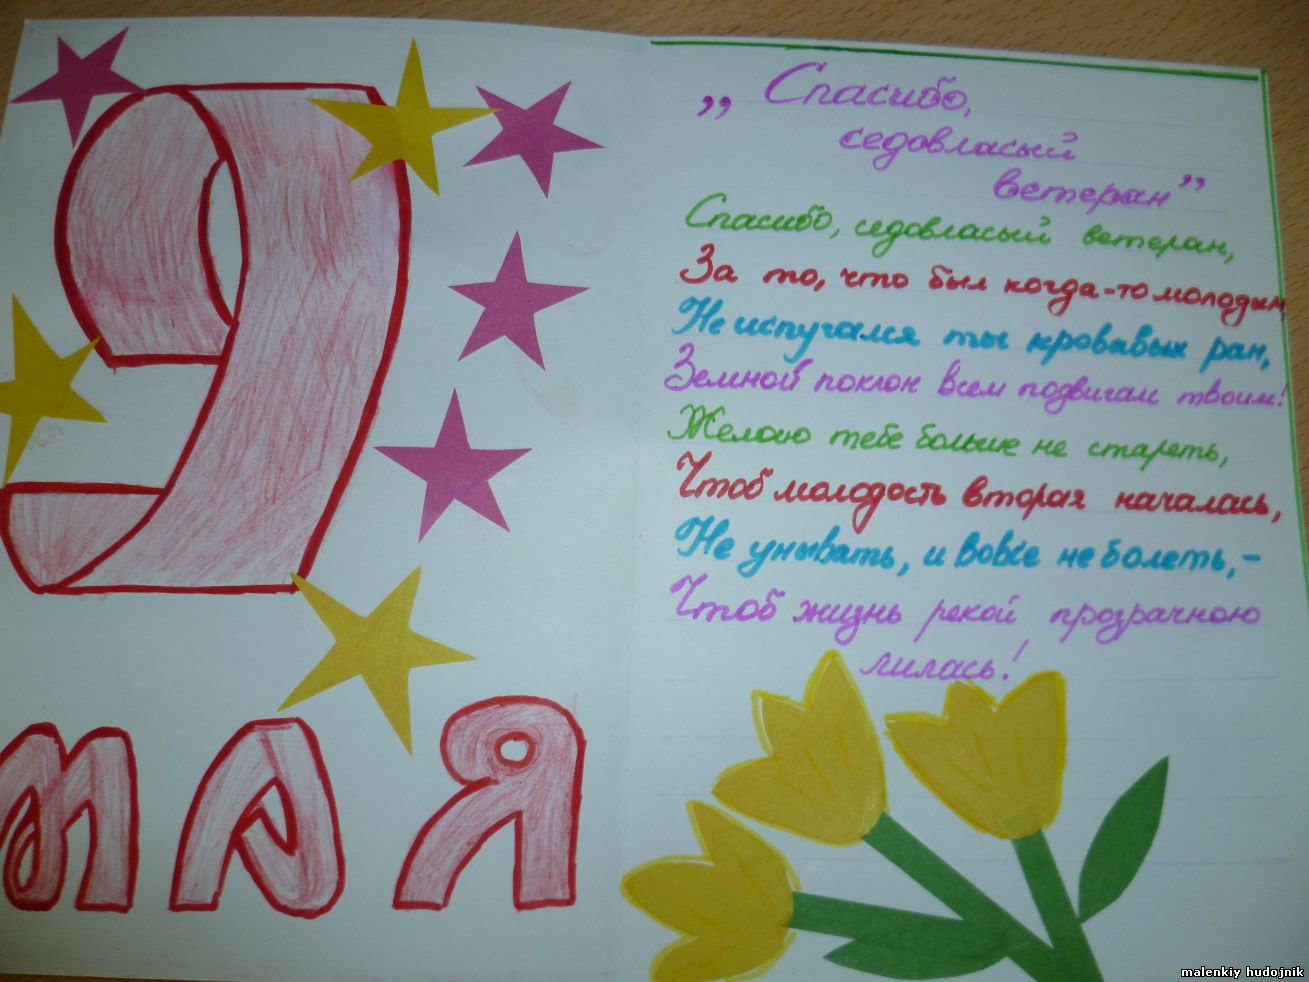 9
МАЯ
„ Спасибо,
седовласый
ветеран”
Спасибо, седовласый ветеран,
За то, что был когда-то молодым,
Не испугался ты кровавых ран,
Земной поклон всем подвигам твоим!
Желаю тебе больше не стареть,
Чтоб молодость вторая началась,
Не унывать, и вовсе не болеть,-
Чтоб жизнь рекой прозрачною
лилась!
malenkiy hudojnik